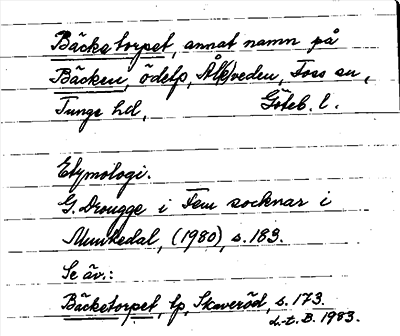 Bäckatorpet, annat namn på
Bäcken, ödetp, Ål(k)veden, Foss sn,
Tunge hd, Göteb. l.
Etymologi.
G. Drougge i Fem socknar i
Munkedal, (1980), s. 183.
Se äv.:
Bäcketorpet, lp, Skaveröd, s. 173.
L-t. B. 1983.